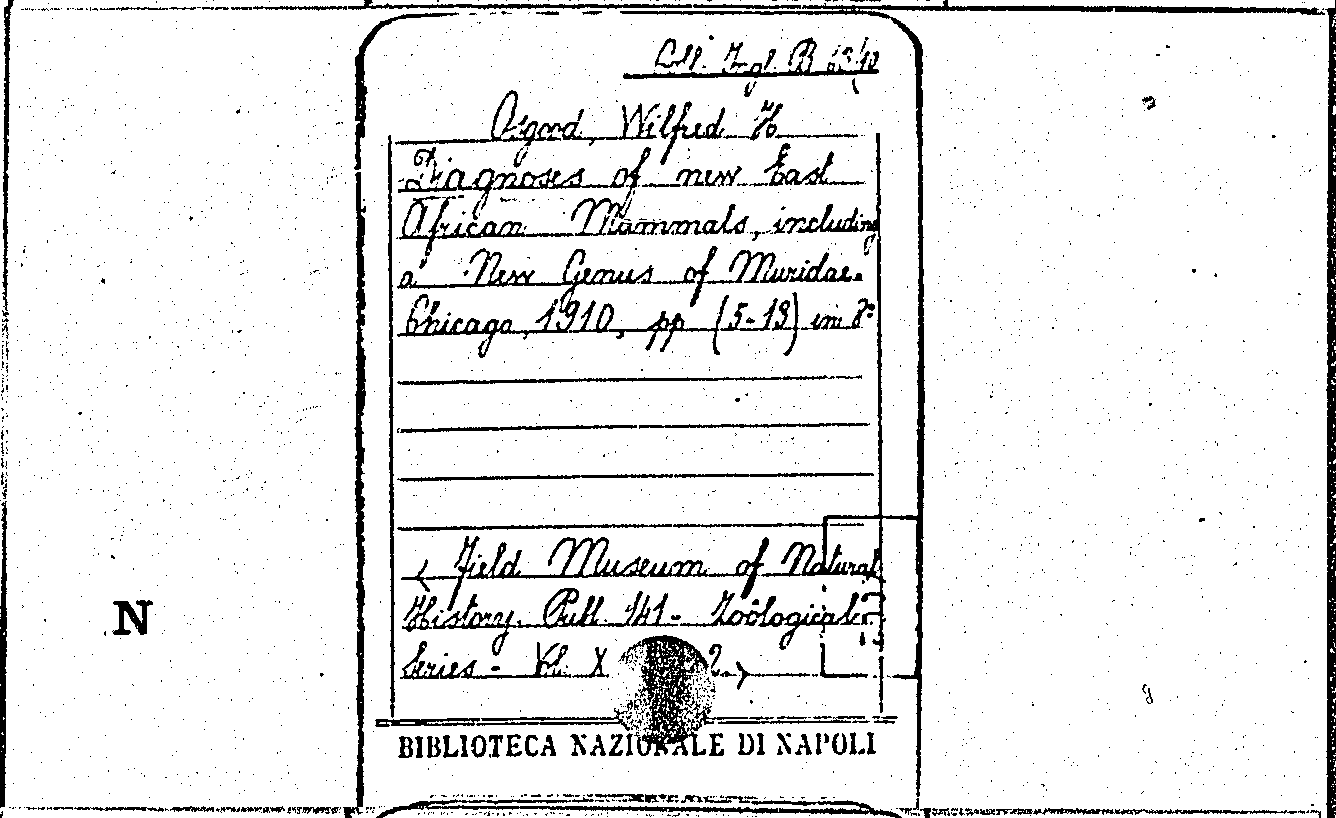 Coll. Ingl. B 63/12
Osgood, Wilfred H
Diagnoses of new East
African Mammals, including
a New Genus of Muridae.
Chicago, 1910, pp (5-13) in 8°
< Field Museum of Natural
History. Publ. 141 - Zoölogical
Series - Vol. X 2. >
N
BIBLIOTECA NAZIONALE DI NAPOLI